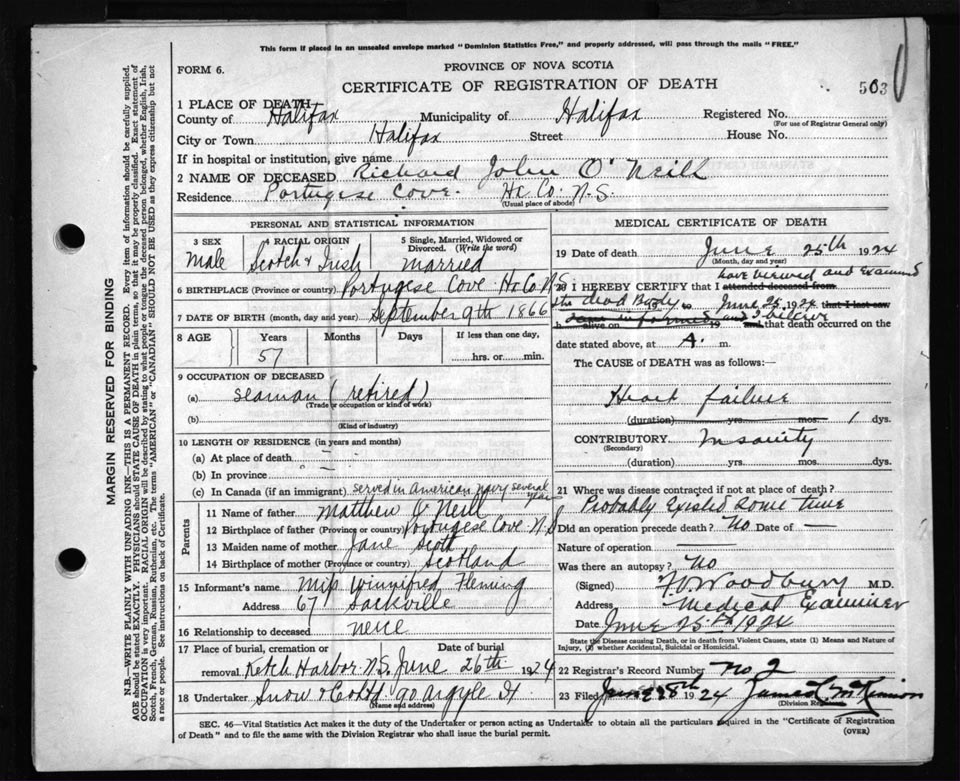 This form if placed in an unsealed envelope marked "Dominion Statistics Free," and properly addressed, will pass through the mails "FREE."
FORM 6.
PROVINCE OF NOVA SCOTIA
CERTIFICATE OF REGISTRATION OF DEATH
503
1 PLACE OF DEATH
County of Halifax Municipality of Halifax Registered No.
(For use of Registrar General only)
City or Town Halifax Street House No.
If in hospital or institution, give name
2 NAME OF DECEASED Richard John O'Neill
Residence Portugese Cove. Hx Co. N.S.
(Usual place of abode)
PERSONAL AND STATISTICAL INFORMATION
3 SEX Male
4 RACIAL ORIGIN Scotch & Irish
5 Single, Married, Widowed or Divorced. (Write the word) married
6 BIRTHPLACE (Province or country) Portugese Cove Hx Co N.S
7 DATE OF BIRTH (month, day and year) September 9th 1866
8 AGE Years Months Days If less than one day,
57 hrs. or min.
9 OCCUPATION OF DECEASED
(a) seaman (retired)
(Trade or occupation or kind of work)
(b)
(Kind of industry)
10 LENGTH OF RESIDENCE (in years and months)
(a) At place of death
(b) In province
(c) In Canada (if an immigrant) served in American navy several years
Parents
11 Name of father Matthew O'Neill
12 Birthplace of father (Province or country) Portugese Cove N.S
13 Maiden name of mother Jane Scott
14 Birthplace of mother (Province or country) Scotland
15 Informant's name Miss Winnifred Fleming
Address 67 Sackville
16 Relationship to deceased neice
17 Place of burial, cremation or removal Ketch Harbor N.S. Date of burial June 26th 1924
18 Undertaker Snow & Co Ltd 90 Argyle St
(Name and address)
MEDICAL CERTIFICATE OF DEATH
19 Date of death June 25th 1924
(Month, day and year)
have viewed and examined
20 I HEREBY CERTIFY that I attended deceased from
the dead Body 19 to June 25 1924 that I last saw
h alive on informed and 19 I believe that death occurred on the
date stated above, at A. m.
The CAUSE of DEATH was as follows:—
Heart failure
(duration) yrs. mos. 1 dys.
CONTRIBUTORY Insanity
(Secondary)
(duration) yrs. mos. dys.
21 Where was disease contracted if not at place of death?
Probably Existed some time
Did an operation precede death? No Date of
Nature of operation
Was there an autopsy? No
(Signed) Woodbury M.D.
Address Medical Examiner
Date June 25th 1924
State the Disease causing Death, or in death from Violent Causes, state (1) Means and Nature of Injury, (2) whether Accidental, Suicidal or Homicidal.
22 Registrar's Record Number No 2
23 Filed June 28th 1924 James McKinnon
(Division Registrar)
SEC. 46—Vital Statistics Act makes it the duty of the Undertaker or person acting as Undertaker to obtain all the particulars required in the "Certificate of Registration
of Death" and to file the same with the Division Registrar who shall issue the burial permit.
(OVER)
MARGIN RESERVED FOR BINDING
N.B.—WRITE PLAINLY WITH UNFADING INK—THIS IS A PERMANENT RECORD. Every item of information should be carefully supplied.
AGE should be stated EXACTLY. PHYSICIANS should STATE CAUSE OF DEATH in plain terms, so that it may be properly classified. Exact statement of
OCCUPATION is very important. RACIAL ORIGIN will be described by stating to what people or tongue the deceased person belonged, whether English, Irish,
Scotch, French, German, Russian, Ruthenian, etc. The terms "AMERICAN" or "CANADIAN" SHOULD NOT BE USED as they express citizenship but not
a race or people. See instructions on back of Certificate.